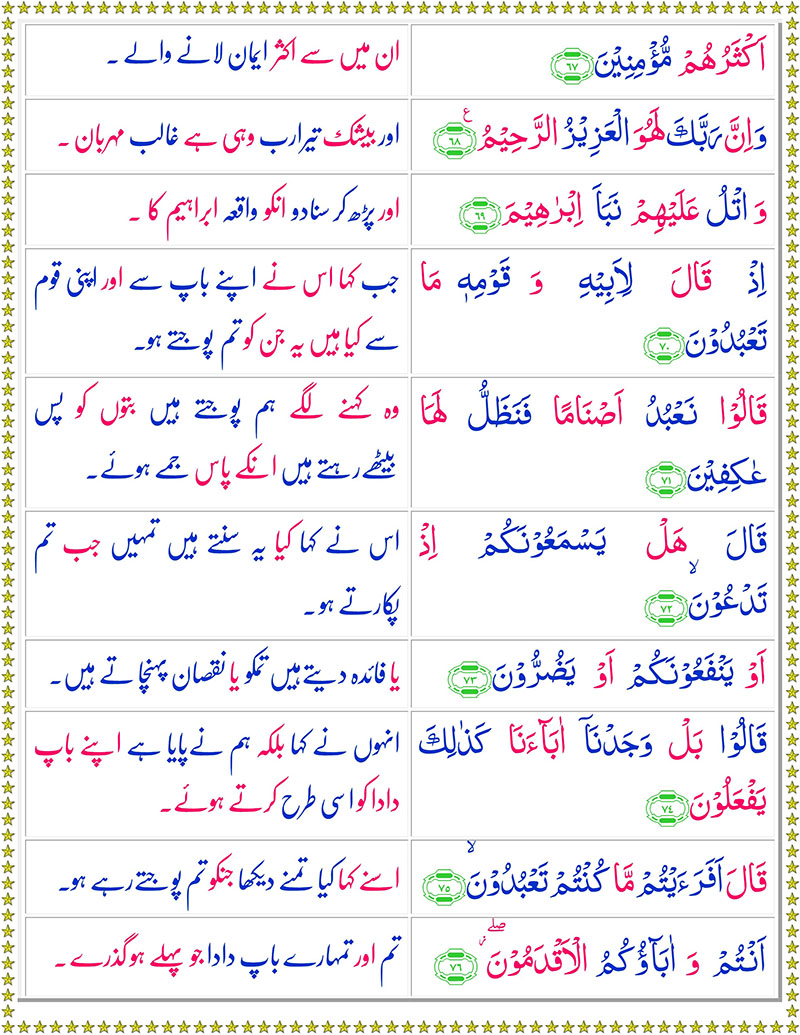 اَكْثَرُهُمْ مُّؤْمِنِيْنَ ٦٧
ان میں سے اکثر ایمان لانے والے ۔
وَاِنَّ رَبَّكَ لَهُوَ الْعَزِيْزُ الرَّحِيْمُ ٦٨ ع
اور بیشک تیرا رب وہی ہے غالب مہربان ۔
وَ اتْلُ عَلَيْهِمْ نَبَاَ اِبْرٰهِيْمَ ٦٩
اور پڑھ کر سنا دو انکو واقعہ ابراہیم کا ۔
اِذْ قَالَ لِاَبِيْهِ وَ قَوْمِهٖ مَا
تَعْبُدُوْنَ ٧٠
جب کہا اس نے اپنے باپ سے اور اپنی قوم
سے کیا ہیں یہ جن کو تم پوجتے ہو۔
قَالُوْا نَعْبُدُ اَصْنَامًا فَنَظَلُّ لَهَا
عٰكِفِيْنَ ٧١
وہ کہنے لگے ہم پوجتے ہیں بتوں کو پس
بیٹھے رہتے ہیں انکے پاس جمے ہوئے۔
قَالَ هَلْ يَسْمَعُوْنَكُمْ اِذْ
تَدْعُوْنَ ۙ ٧٢
اس نے کہا کیا یہ سنتے ہیں تمہیں جب تم
پکارتے ہو۔
اَوْ يَنْفَعُوْنَكُمْ اَوْ يَضُرُّوْنَ ٧٣
یا فائدہ دیتے ہیں تمکو یا نقصان پہنچاتے ہیں۔
قَالُوْا بَلْ وَجَدْنَاۤ اٰبَآءَنَا كَذٰلِكَ
يَفْعَلُوْنَ ٧٤
انہوں نے کہا بلکہ ہم نے پایا ہے اپنے باپ
دادا کو اسی طرح کرتے ہوئے۔
قَالَ اَفَرَءَيْتُمْ مَّا كُنْتُمْ تَعْبُدُوْنَ ۙ ٧٥
اسنے کہا کیا تمنے دیکھا جنکو تم پوجتے رہے ہو۔
اَنْتُمْ وَ اٰبَآؤُكُمُ الْاَقْدَمُوْنَ ۖ ٧٦
تم اور تمہارے باپ دادا جو پہلے ہو گذرے ۔